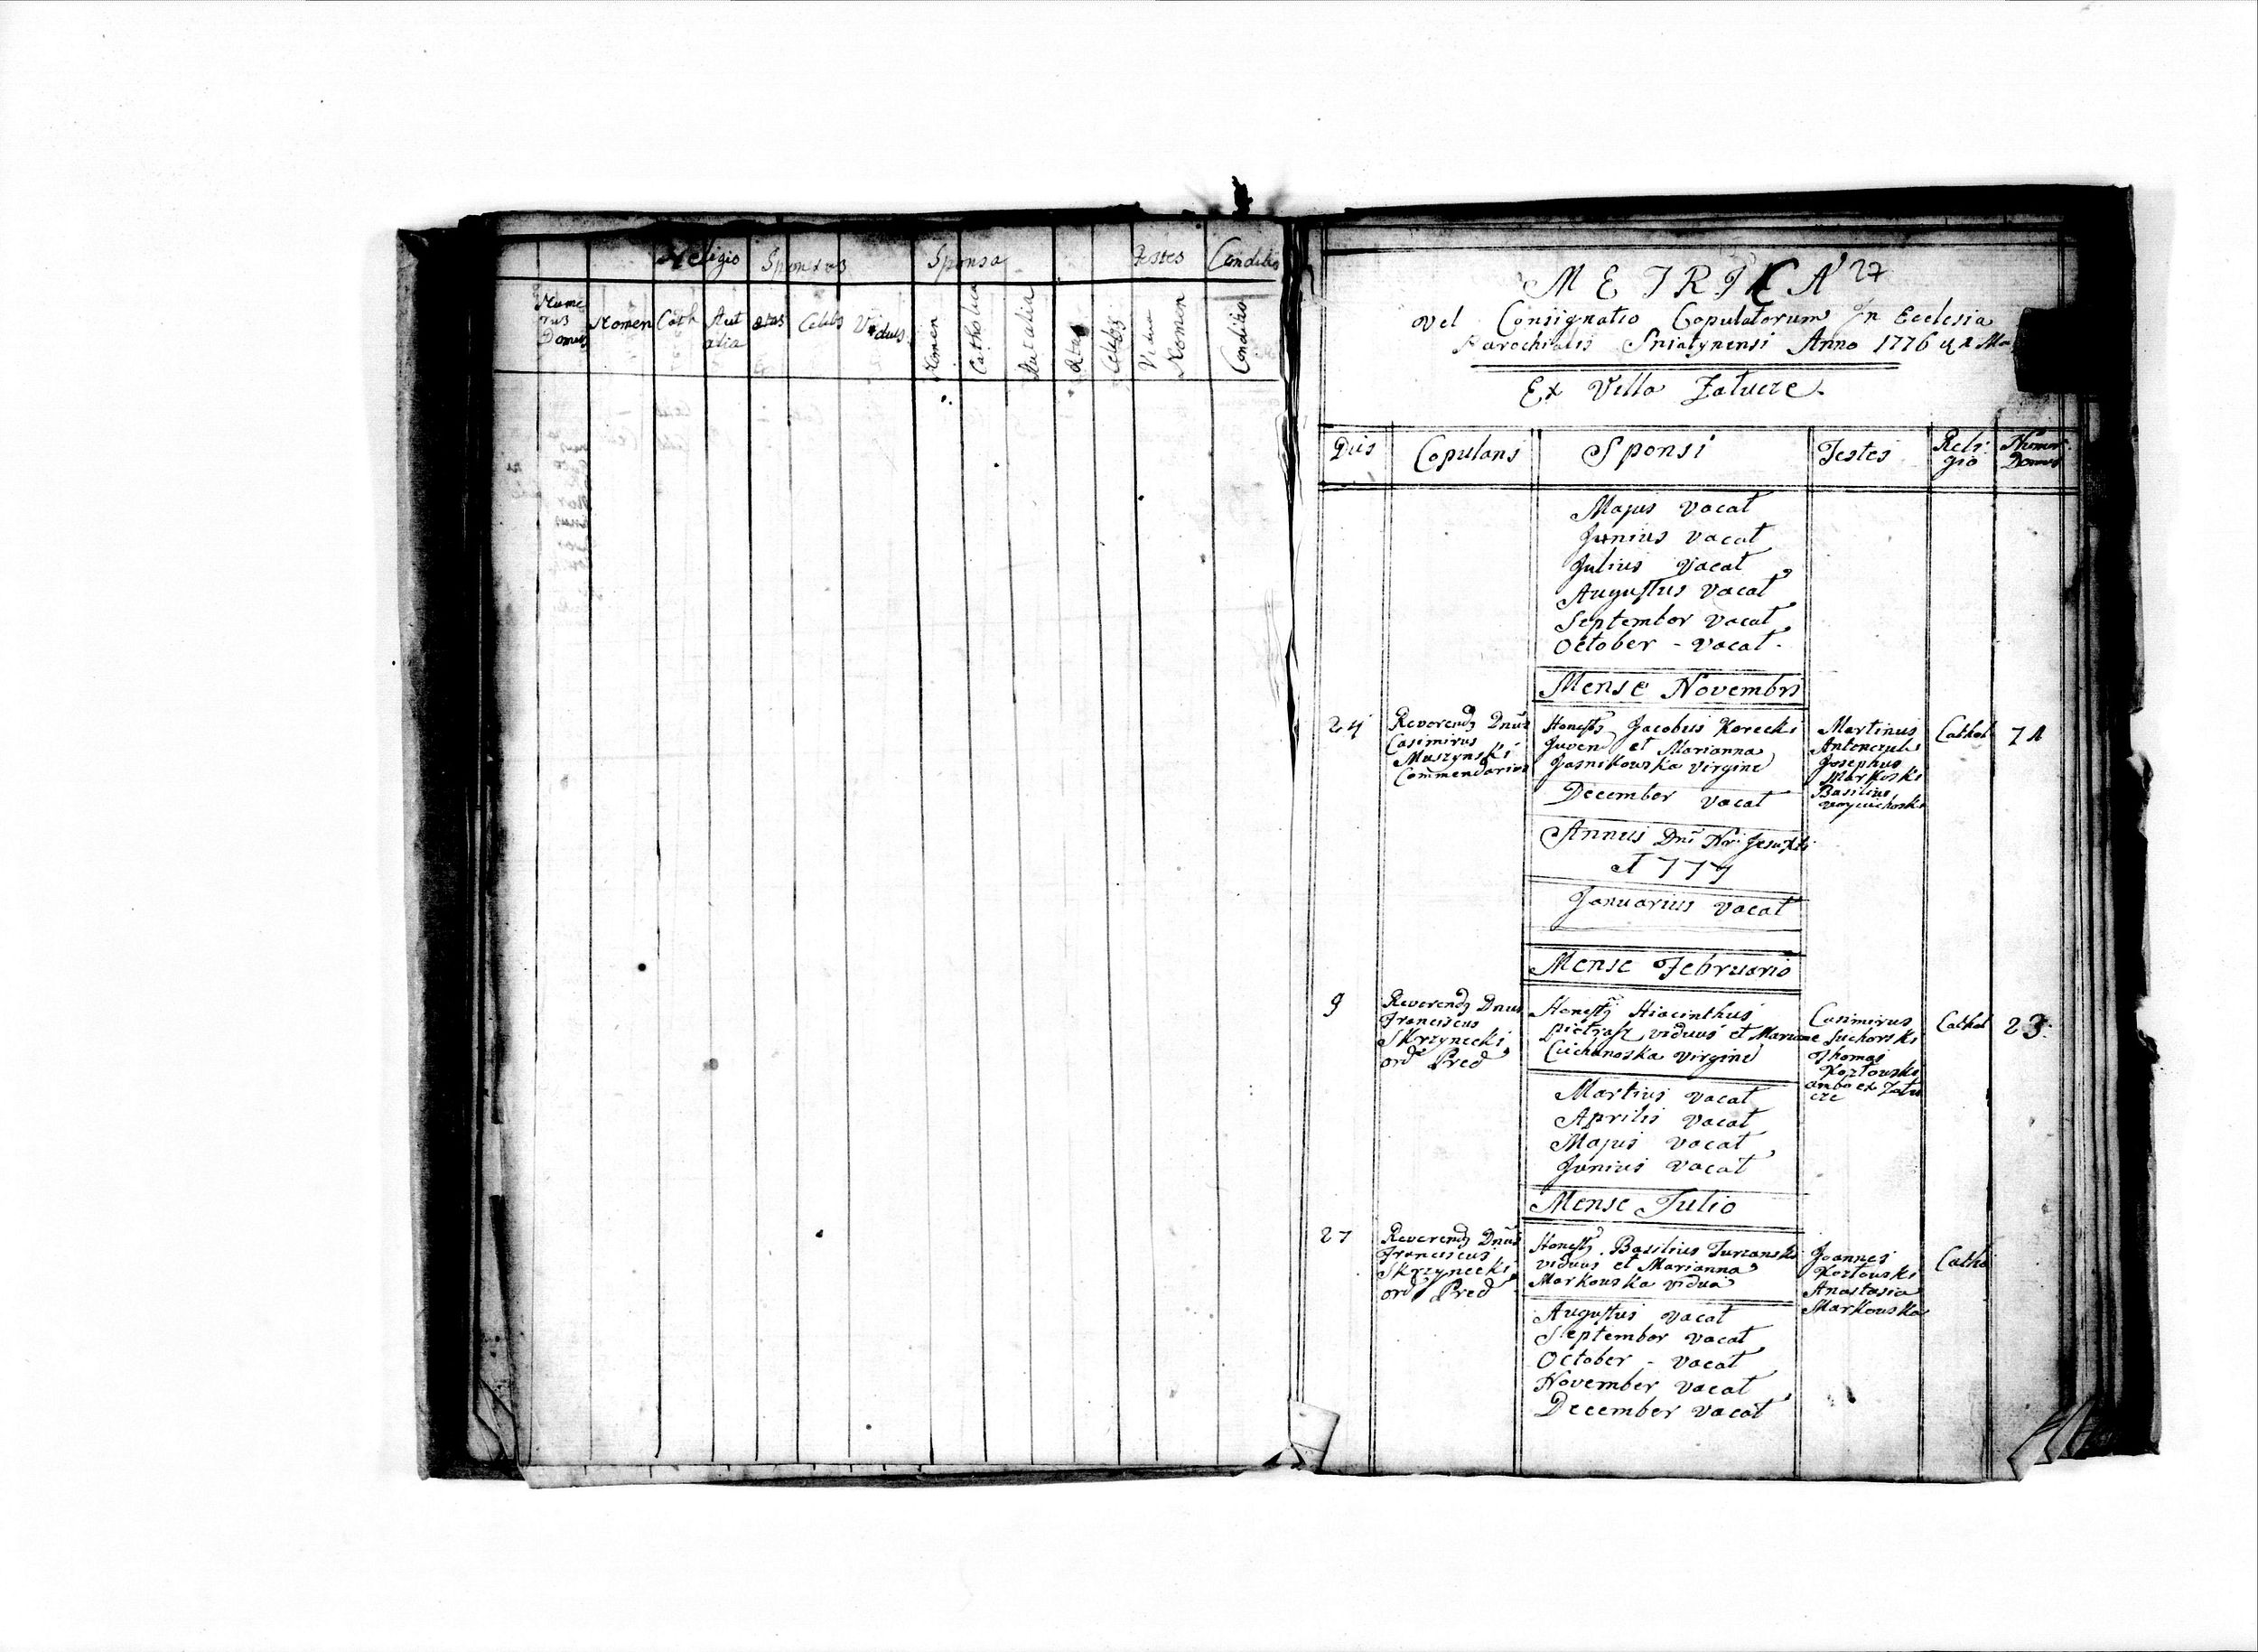 Religio Sponsus Sponsa Testes Conditio
Nume
rus
Domus
Nomen Cath Aut
alia
Ætas Celebs Viduus
Nomen Catholica Aut alia Ætas Celebs Vidua Nomen Conditio
METRICA 27
vel Consignatio Copulatorum In Ecclesia
Parochialis Sniatynensi Anno 1776
Ex Villa Zalucze.
Dies Copulans Sponsi Testes Reli-
gio Numer.
Domus
Majus vacat
Junius vacat
Julius vacat
Augustus vacat
September vacat
October - vacat.
Mense Novembri
24
Reverend Dnus
Casimirus
Muszynski
Commendarius
Honest Jacobus Korecki
Juven et Marianna
Jasnikowska virgine
Martinus
Josephus
Markoski
Basilius
Cathol
December vacat
Annus Dni Nri
1777
Januarius vacat
Mense Februario
9
Reverend Dnus
Franciscus
Skrzynecki
ord Pred
Honest Hiacinthus
viduus et Mariane
Cuchanoska virgine
Casimirus
Suchorski
Thomas
Kozlowski
ambo ex Zalu
cze
Cathol
23.
Martius vacat
Aprilis vacat
Majus vacat
Junius vacat
Mense Julio
27
Reverend Dnus
Franciscus
Skrzynecki
ord Pred
Honest Basilius Turzanski
viduus et Marianna
Markowska vidua
Joannes
Kozlowski
Anastasia
Markowska
Catho
Augustus vacat
September vacat
October - vacat
November vacat
December vacat